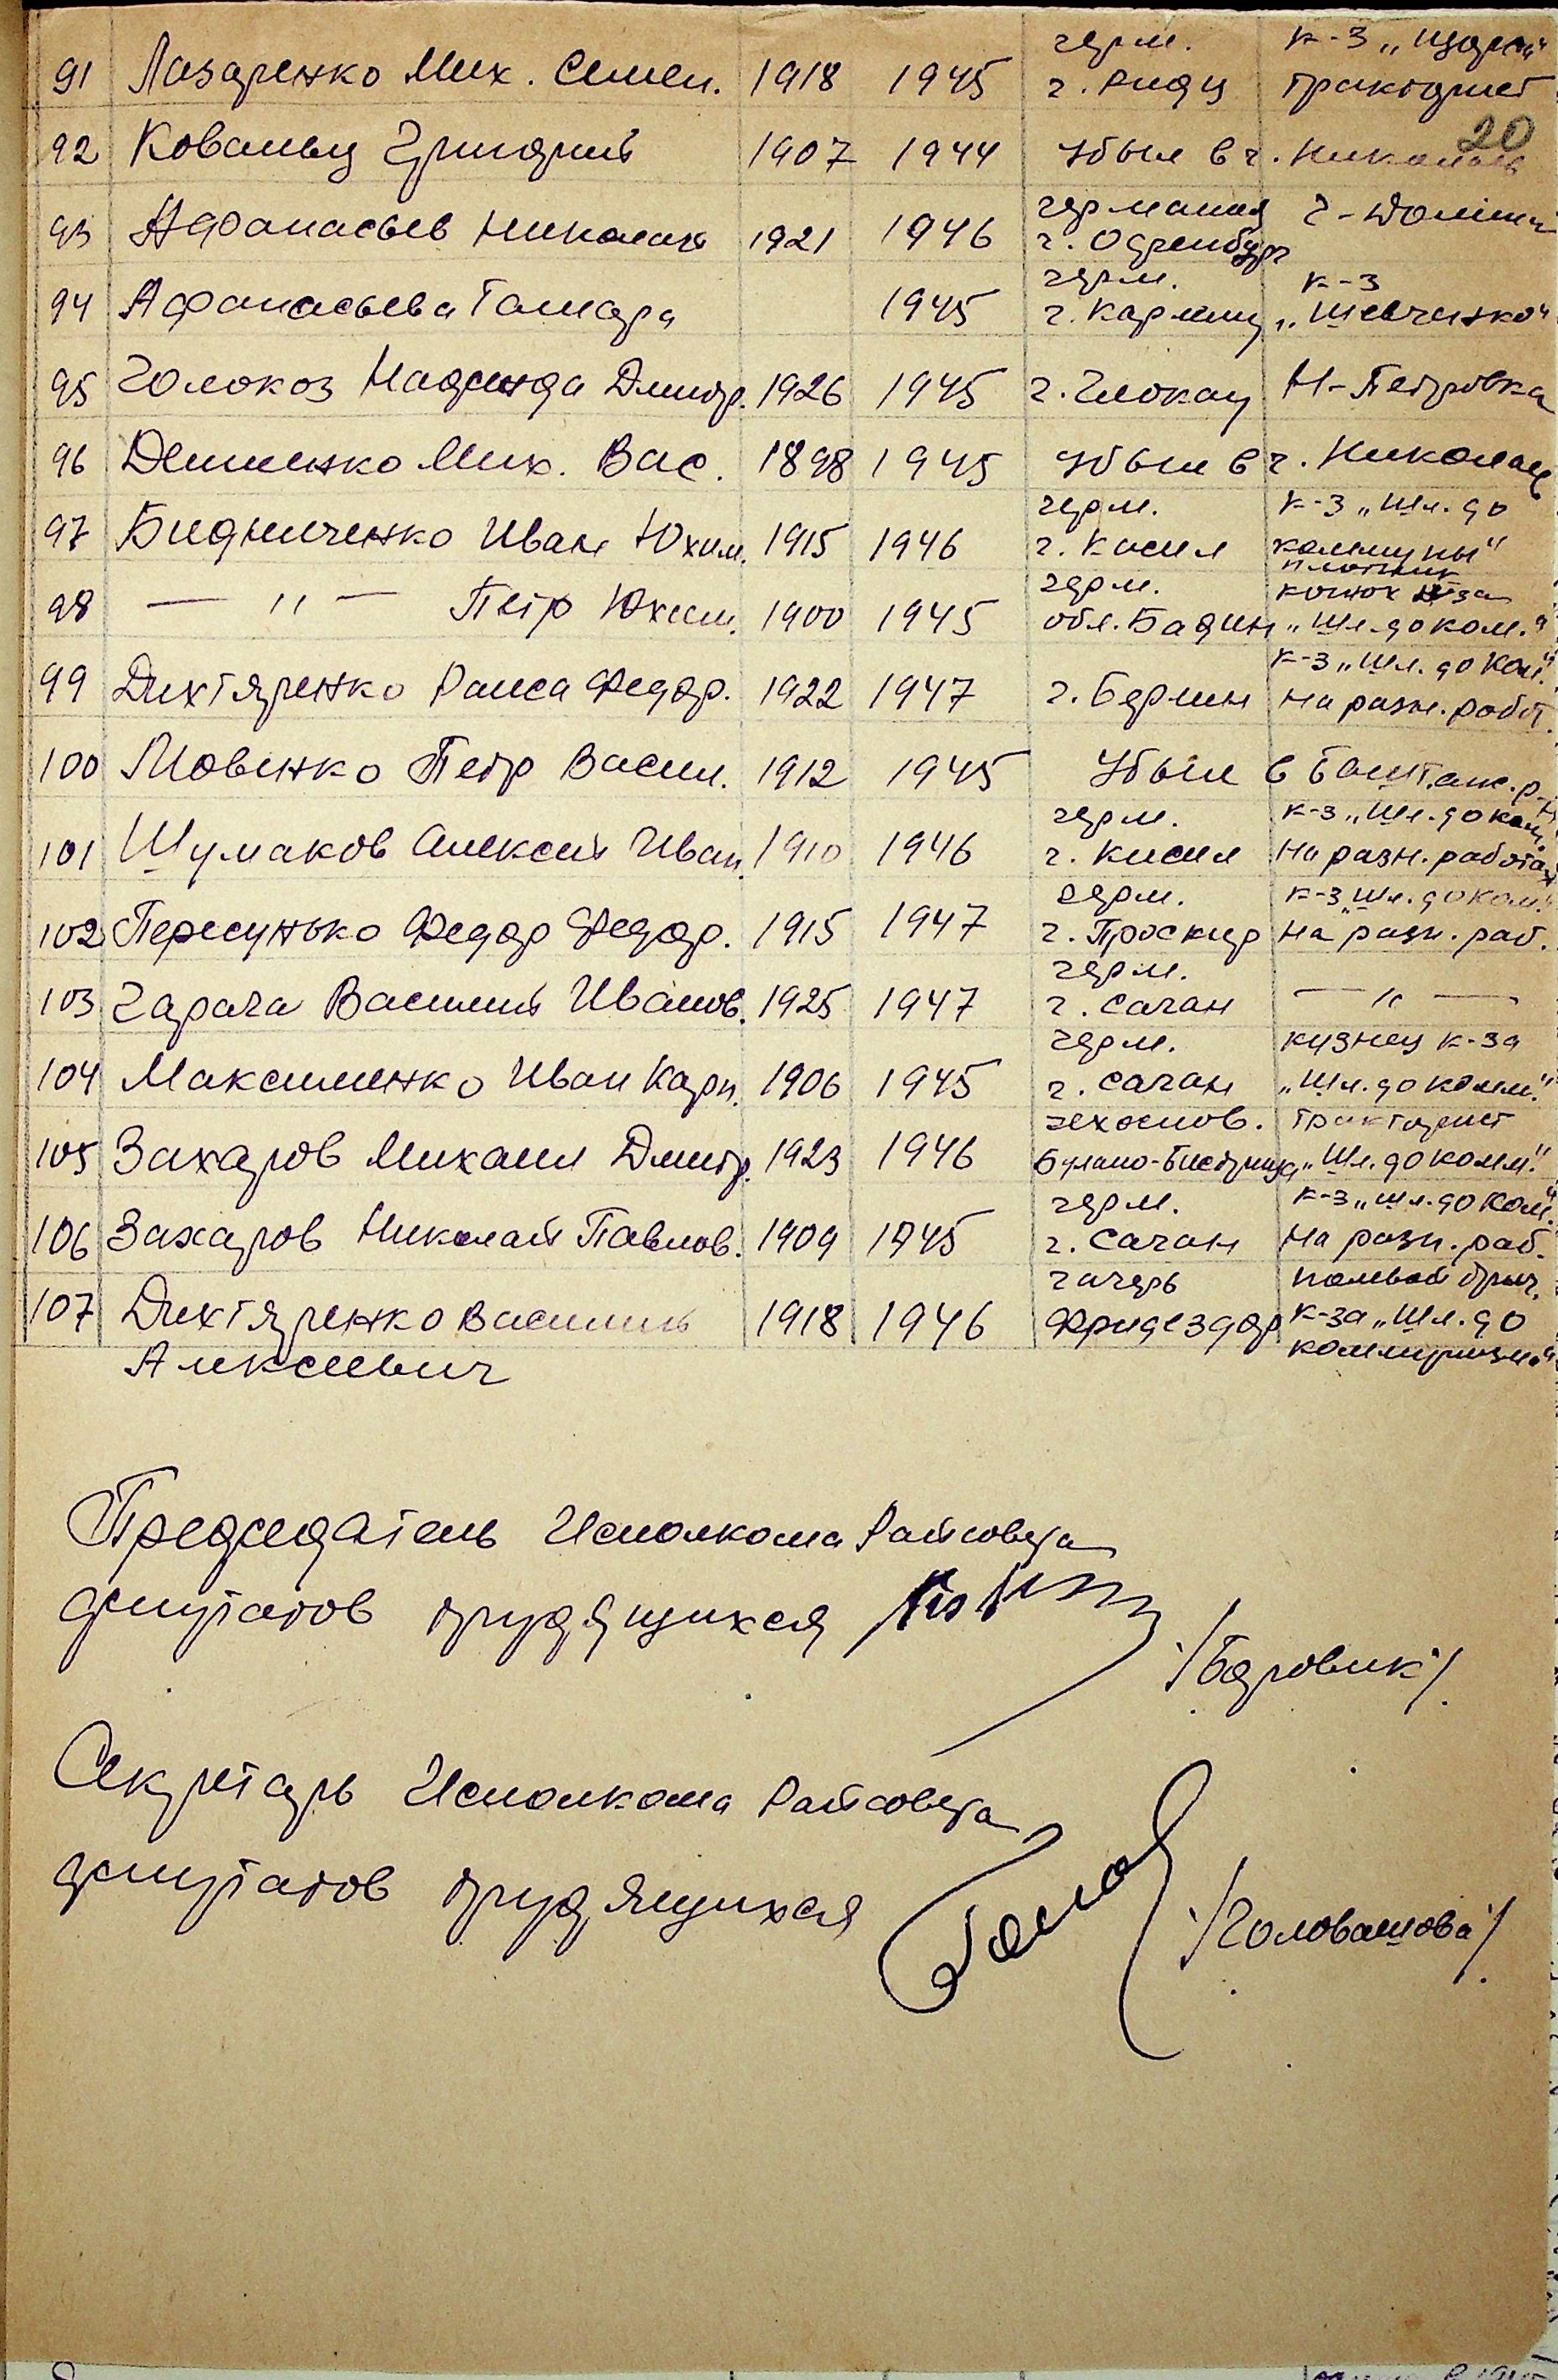 герм. к-з „Щорса"
91 Лазаренко Мих. Семен. 1918 1945 г. Ридц тракторист
20
92 Ковалец Григорий 1907 1944 Убыл в г. Николаев
германия
93 Афанасьев Николай 1921 1946 г. Офренбург
герм. к-з
94 Афанасьева Тамара 1945 г. Карлиц „Шевченко"
95 Голокоз Надежда Дмитр. 1926 1945 г. Глокац Н-Петровка
96 Демиенко Мих. Вас. 1898 1945 Убыл в г. Николаев
герм. к-з „Шл. до
97 Бидниченко Иван Юхим. 1915 1946 г. Кисил коммуны"
плотник
герм. конюх к-за
98 — " — Петр Юхим. 1900 1945 обл. Бадин „Шл. до ком."
к-з „Шл. до Ком."
99 Дихтяренко Раиса Федор. 1922 1947 г. Берлин на разн. работ.
100 Мовенко Петр Васил. 1912 1945 Убыл в Баштанс. р-н
герм. к-з „Шл. до ком."
101 Шумаков Алексей Иван. 1910 1946 г. Кисил на разн. работах
герм. к-з „Шл. до Ком."
102 Пересунько Федор Федор. 1915 1947 г. Проскур на разн. раб.
герм.
103 Гарага Василий Иванов. 1925 1947 г. Саган — " —
герм. кузнец к-за
104 Максименко Иван Карп. 1906 1945 г. Саган „Шл. до комм."
чехослов. тракторист
105 Захаров Михаил Дмитр. 1923 1946 Булано-Бистрица „Шл. до комм."
герм. к-з „Шл. до Ком."
106 Захаров Николай Павлов. 1909 1945 г. Саган на разн. раб.
лагерь полевой бриг.
107 Дихтяренко Василий 1918 1946 Фридездорф к-за „Шл. до
Алексеевич коммунизма"
Председатель Исполкома Райсовета
депутатов трудящихся /Боровик/
Секретарь Исполкома Райсовета
депутатов трудящихся /Головашова/